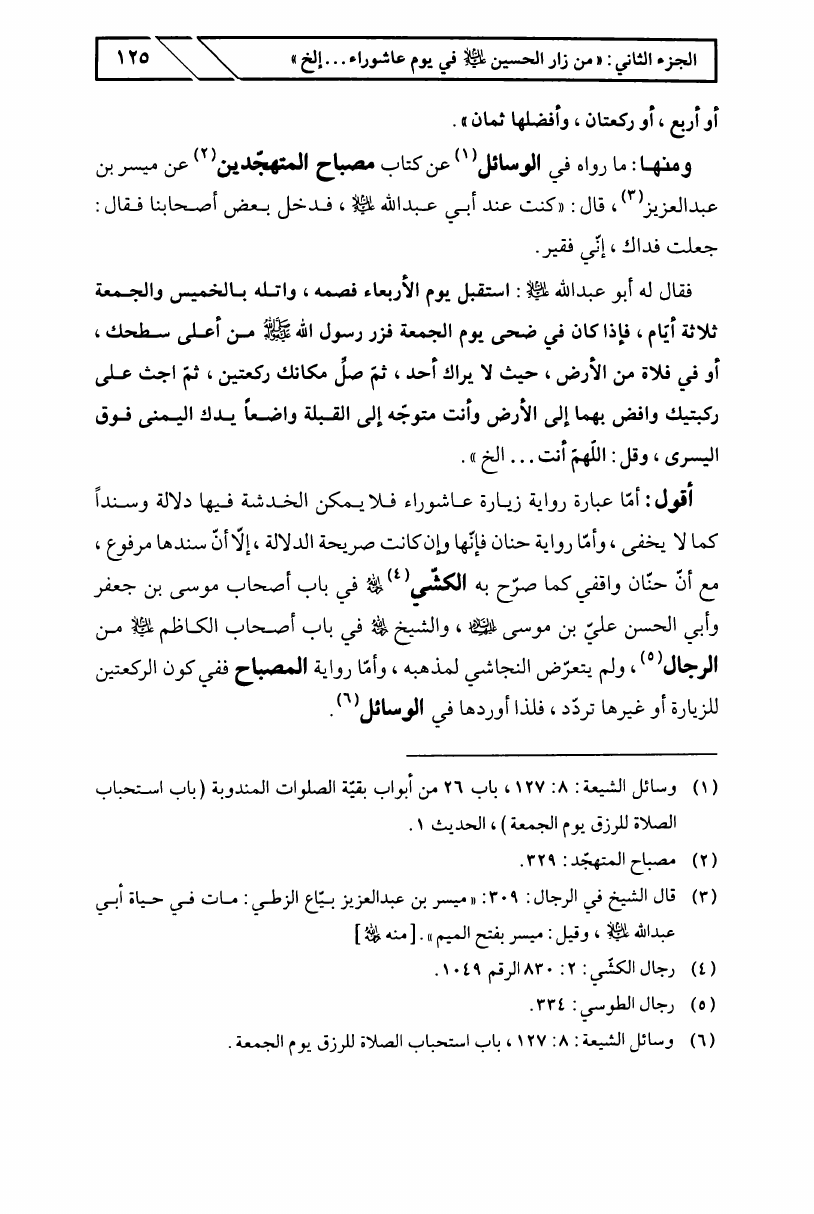 الجزء الثاني: «من زار الحسين عليه السلام في يوم عاشوراء...إلخ» ١٢٥
أو أربع، أو ركعتان، وأفضلها ثمان».
ومنهـا: ما رواه في الوسائل(١) عن كتاب مصباح المتهجّدين(٢) عن ميسر بن
عبدالعزيز(٣)، قال: «كنت عند أبـي عـبدالله عليه السلام، فـدخل بـعض أصـحابنا فـقال:
جعلت فداك، إنّي فقير.
فقال له أبو عبدالله عليه السلام: استقبل يوم الأربعاء فصمه، واتـله بـالخميس والجـمعة
ثلاثة أيّام، فإذا كان في ضحى يوم الجمعة فزر رسول الله صلى الله عليه وآله مـن أعـلى سـطحك،
أو في فلاة من الأرض، حيث لا يراك أحد، ثمّ صلِّ مكانك ركعتين، ثمّ اجث عـلى
ركبتيك وافض بهما إلى الأرض وأنت متوجّه إلى القـبلة واضـعاً يـدك اليـمنى فـوق
اليسرى، وقل: اللّهمّ أنت... الخ».
أقول: أمّا عبارة رواية زيـارة عـاشوراء فـلا يـمكن الخـدشة فـيها دلالة وسـنداً
كما لا يخفى، وأمّا رواية حنان فإنّها وإن كانت صريحة الدلالة، إلّا أنّ سندها مرفوع،
مع أنّ حنّان واقفي كما صرّح به الكشّي(٤) رحمه الله في باب أصحاب موسى بن جعفر
وأبي الحسن عليّ بن موسى عليهم السلام، والشيخ رحمه الله في باب أصـحاب الكـاظم عليه السلام مـن
الرجال(٥)، ولم يتعرّض النجاشي لمذهبه، وأمّا رواية المصباح ففي كون الركعتين
للزيارة أو غيرها تردّد، فلذا أوردها في الوسائل(٦).
(١) وسائل الشيعة: ٨: ١٢٧، باب ٢٦ من أبواب بقيّة الصلوات المندوبة (باب استـحباب
الصلاة للرزق يوم الجمعة)، الحديث ١.
(٢) مصباح المتهجّد: ٣٢٩.
(٣) قال الشيخ في الرجال: ٣٠٩: «ميسر بن عبدالعزيز بـيّاع الزطـي: مـات فـي حـياة أبـي
عبدالله عليه السلام، وقيل: ميسر بفتح الميم». [منه رحمه الله]
(٤) رجال الكشّي: ٢: ٨٣٠ الرقم ١٠٤٩.
(٥) رجال الطوسي: ٣٣٤.
(٦) وسائل الشيعة: ٨: ١٢٧، باب استحباب الصلاة للرزق يوم الجمعة.